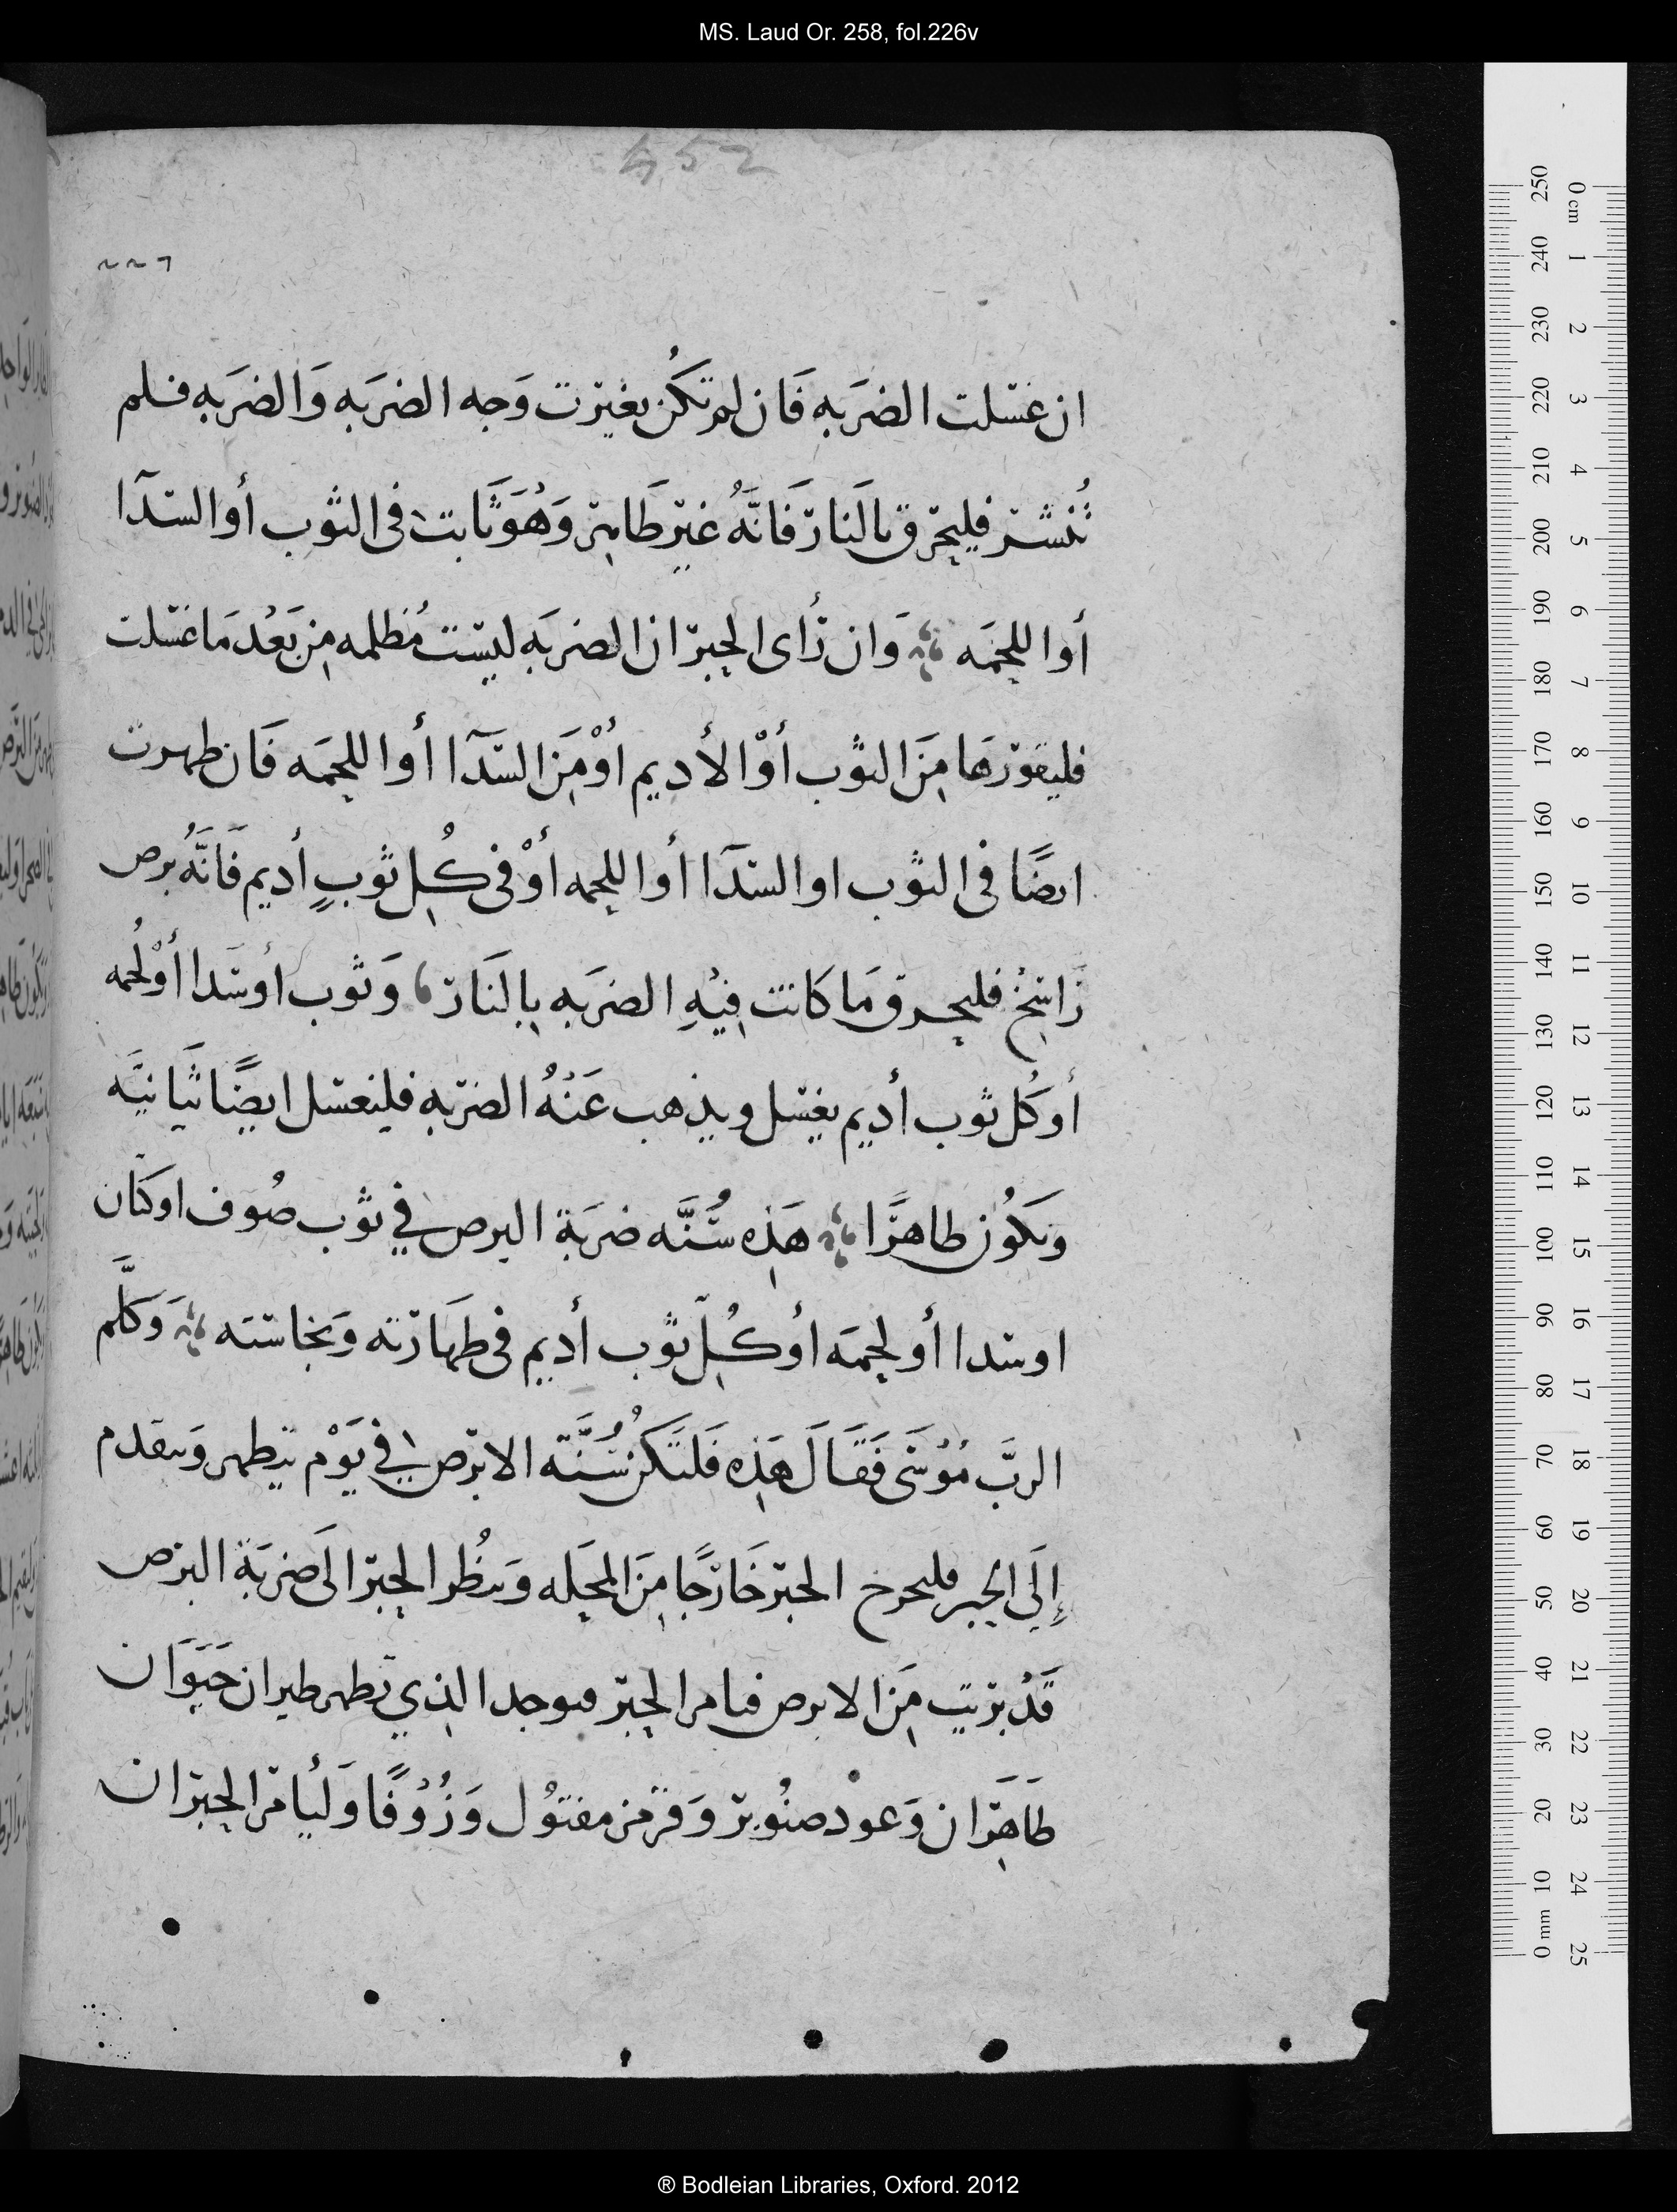 MS. Laud Or. 258, fol.226v
452
٢٢٦
ان غسلت الضرَبه فَان لم تكُن تغيرت وَجه الضرَبه وَالضرَبه فلم
تُنشر فليحرق بالَنار فَانَّهُ غير طَاهِر وَهُوَ ثَابت في الثوب أو السدَآ
أو اللحمَه وَان رأى الحبر ان الضربَه ليست مُظلمه مِن بَعْد مَا غسلت
فليقورهَا مِنَ الثوب أوْ الأديم اوْ مِنَ السدَآ أو اللحمَه فَان ظهرت
ايضًا في الثوب او السدَآ أو اللحمه أوْ في كُل ثوبٍ أديم فَانَّهُ برص
رَاسِخ فليحرق مَا كانت فِيْهِ الضرَبه بِالَنار وَثوب أو سَدا أوْ لُحمه
أو كُل ثوب أديم يغسل ويذهب عَنْهُ الضربه فليغسل ايضًا ثَانيَّه
ويكُون طاهرًا هَذِه سُنَّه ضربَة البرص في ثوب صُوف او كتَان
او سدا أو لحمَه أو كُلّ ثوب أديم في طهَارته وَنجاسته وَكلَّم
الربَّ مُوْسَى فَقَالَ هَذِه فَلتَكُن سُنَّة الابرص في يَوْم يتطهر وَيتقدم
إلَى الحبر فليخرج الحبر خَارجًا مِنَ المحَله وَينظُر الحبر الَى ضربَة البرص
قَدْ بريت مِنَ الابرص فيامر الحبر فيوجد الذي تطهر طيران حَيَوَان
طَاهِرَان وَعود صنُوبر وَقرمز مفتوُل وَزُوْفًا وَليأمر الحبر ان
® Bodleian Libraries, Oxford. 2012